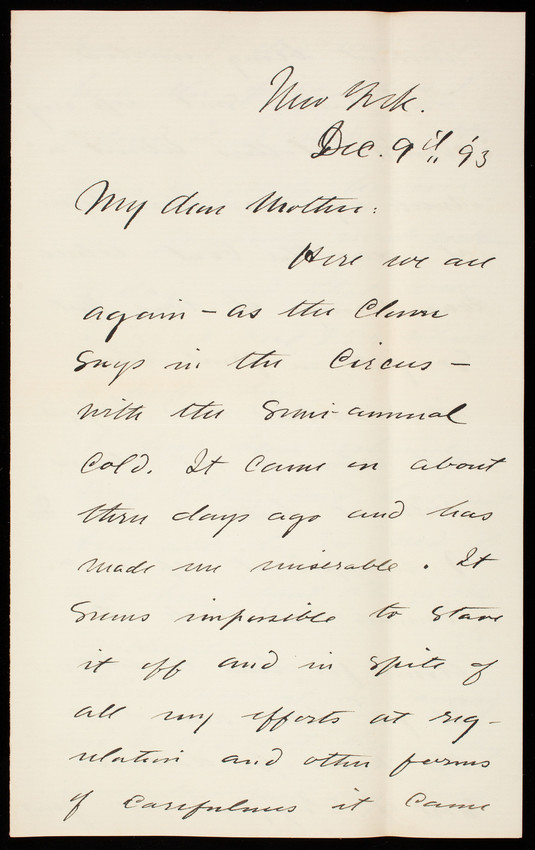 New York.
Dec. 9th '93
My dear Mother:
Here we are
again – as the Clown
Says in the Circus –
with the Semi-annual
Cold. It came on about
three days ago and has
made me miserable. It
Seems impossible to stave
it off and in spite of
all my efforts at reg-
ulation and other forms
of carefulness it came